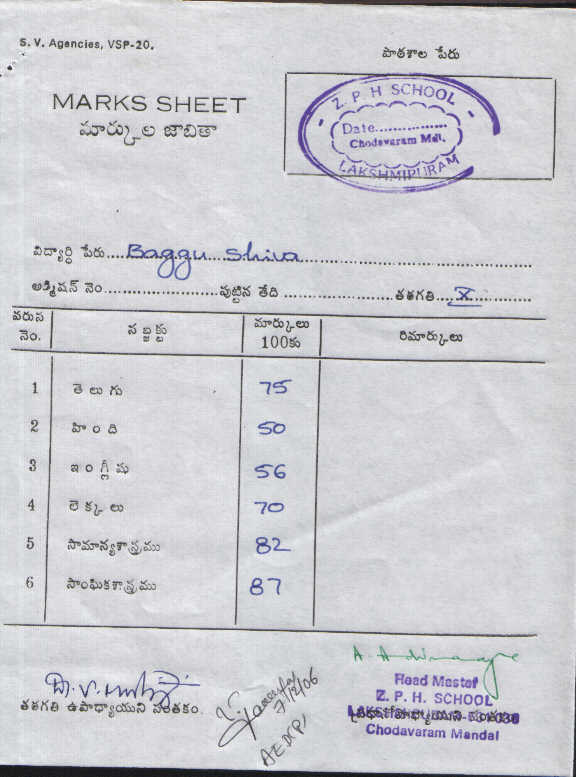 S. V. Agencies, VSP-20.
పాఠశాల పేరు
MARKS SHEET
మార్కుల జాబితా
Z. P. H SCHOOL
Date................
Chodavaram Mdl.
LAKSHMIPURAM
విద్యార్థి పేరు.... Baggu Shiva
అడ్మిషన్ నెం........................పుట్టిన తేది........................తరగతి.. X
వరుస నెం. సబ్జక్టు మార్కులు 100కు రిమార్కులు
1 తెలుగు 75
2 హిందీ 50
3 ఇంగ్లీషు 56
4 లెక్కలు 70
5 సామాన్యశాస్త్రము 82
6 సాంఘికశాస్త్రము 87
తరగతి ఉపాధ్యాయుని సంతకం.
7/12/06
Head Master
Z. P. H. SCHOOL
Chodavaram Mandal